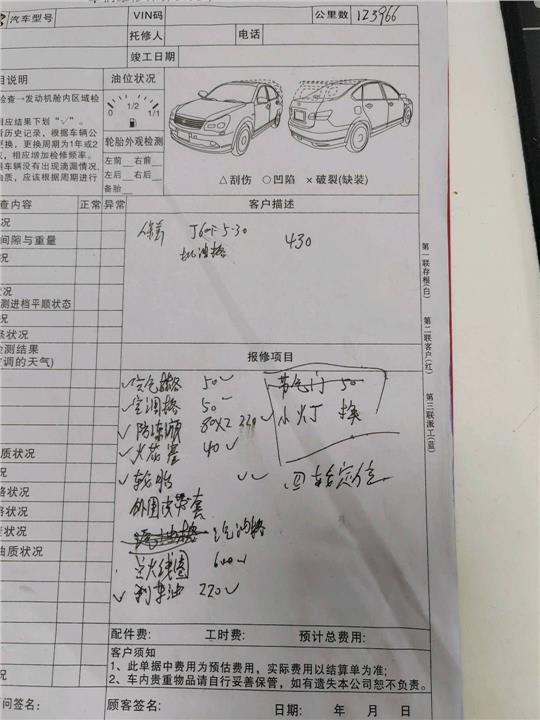 汽车型号 VIN码 公里数 123966
托修人 电话
竣工日期
目说明 油位状况
检查→发动机舱内区域检
1/2
相应结果下划“√”。
0 1/1
历史记录,根据车辆公
更换,更换周期为1年或2
轮胎外观检测
,相应增加检修频率。
左前 右前
车辆没有出现滴漏情况,
左后 右后
油质,应该根据周期进行
备胎
△刮伤 ○凹陷 ×破裂(缺装)
查内容 正常 异常 客户描述
况
保养 5-30 430
机油格
间隙与重量
况
况
测进档平顺状态
况
条状况
检测结果
空调的天气)
报修项目
空气格 50 节气门 50
空调格 50 小灯 换
防冻液 80X2 220
火花塞 40
轮胎 四轮定位
外围皮带套
汽油格
点火线圈 600
刹车油 220
质状况
况
格状况
格状况
状况
油质状况
况
配件费: 工时费: 预计总费用:
客户须知
1、此单据中费用为预估费用,实际费用以结算单为准;
2、车内贵重物品请自行妥善保管,如有遗失本公司恕不负责。
问签名: 顾客签名: 日期: 年 月 日
第一联存根(白)
第二联客户(红)
第三联派工(蓝)